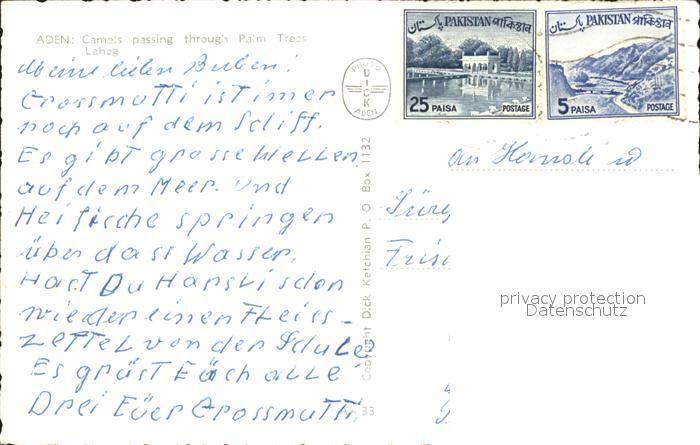 ADEN: Camels passing through Palm Trees
Laheg
Meine lieben Buben!
Grossmutti ist imer
noch auf dem Schiff.
Es gibt grosse Wellen
auf dem Meer. und
Heifische springen
über dass Wasser.
Hast Du Hansli schon
wieder einen Fleiss-
zettel von der Schule
Es grüst Eüch alle
Drei Eüer Grossmutti.
PHOTO
DICK
ADEN
Copyright Dick Ketchian P. O. Box 1132
33
پاکستان PAKISTAN পাকিস্তান
25 PAISA POSTAGE
پاکستان PAKISTAN পাকিস্তান
5 PAISA POSTAGE
An Hansli u
Jürg
privacy protection
Datenschutz